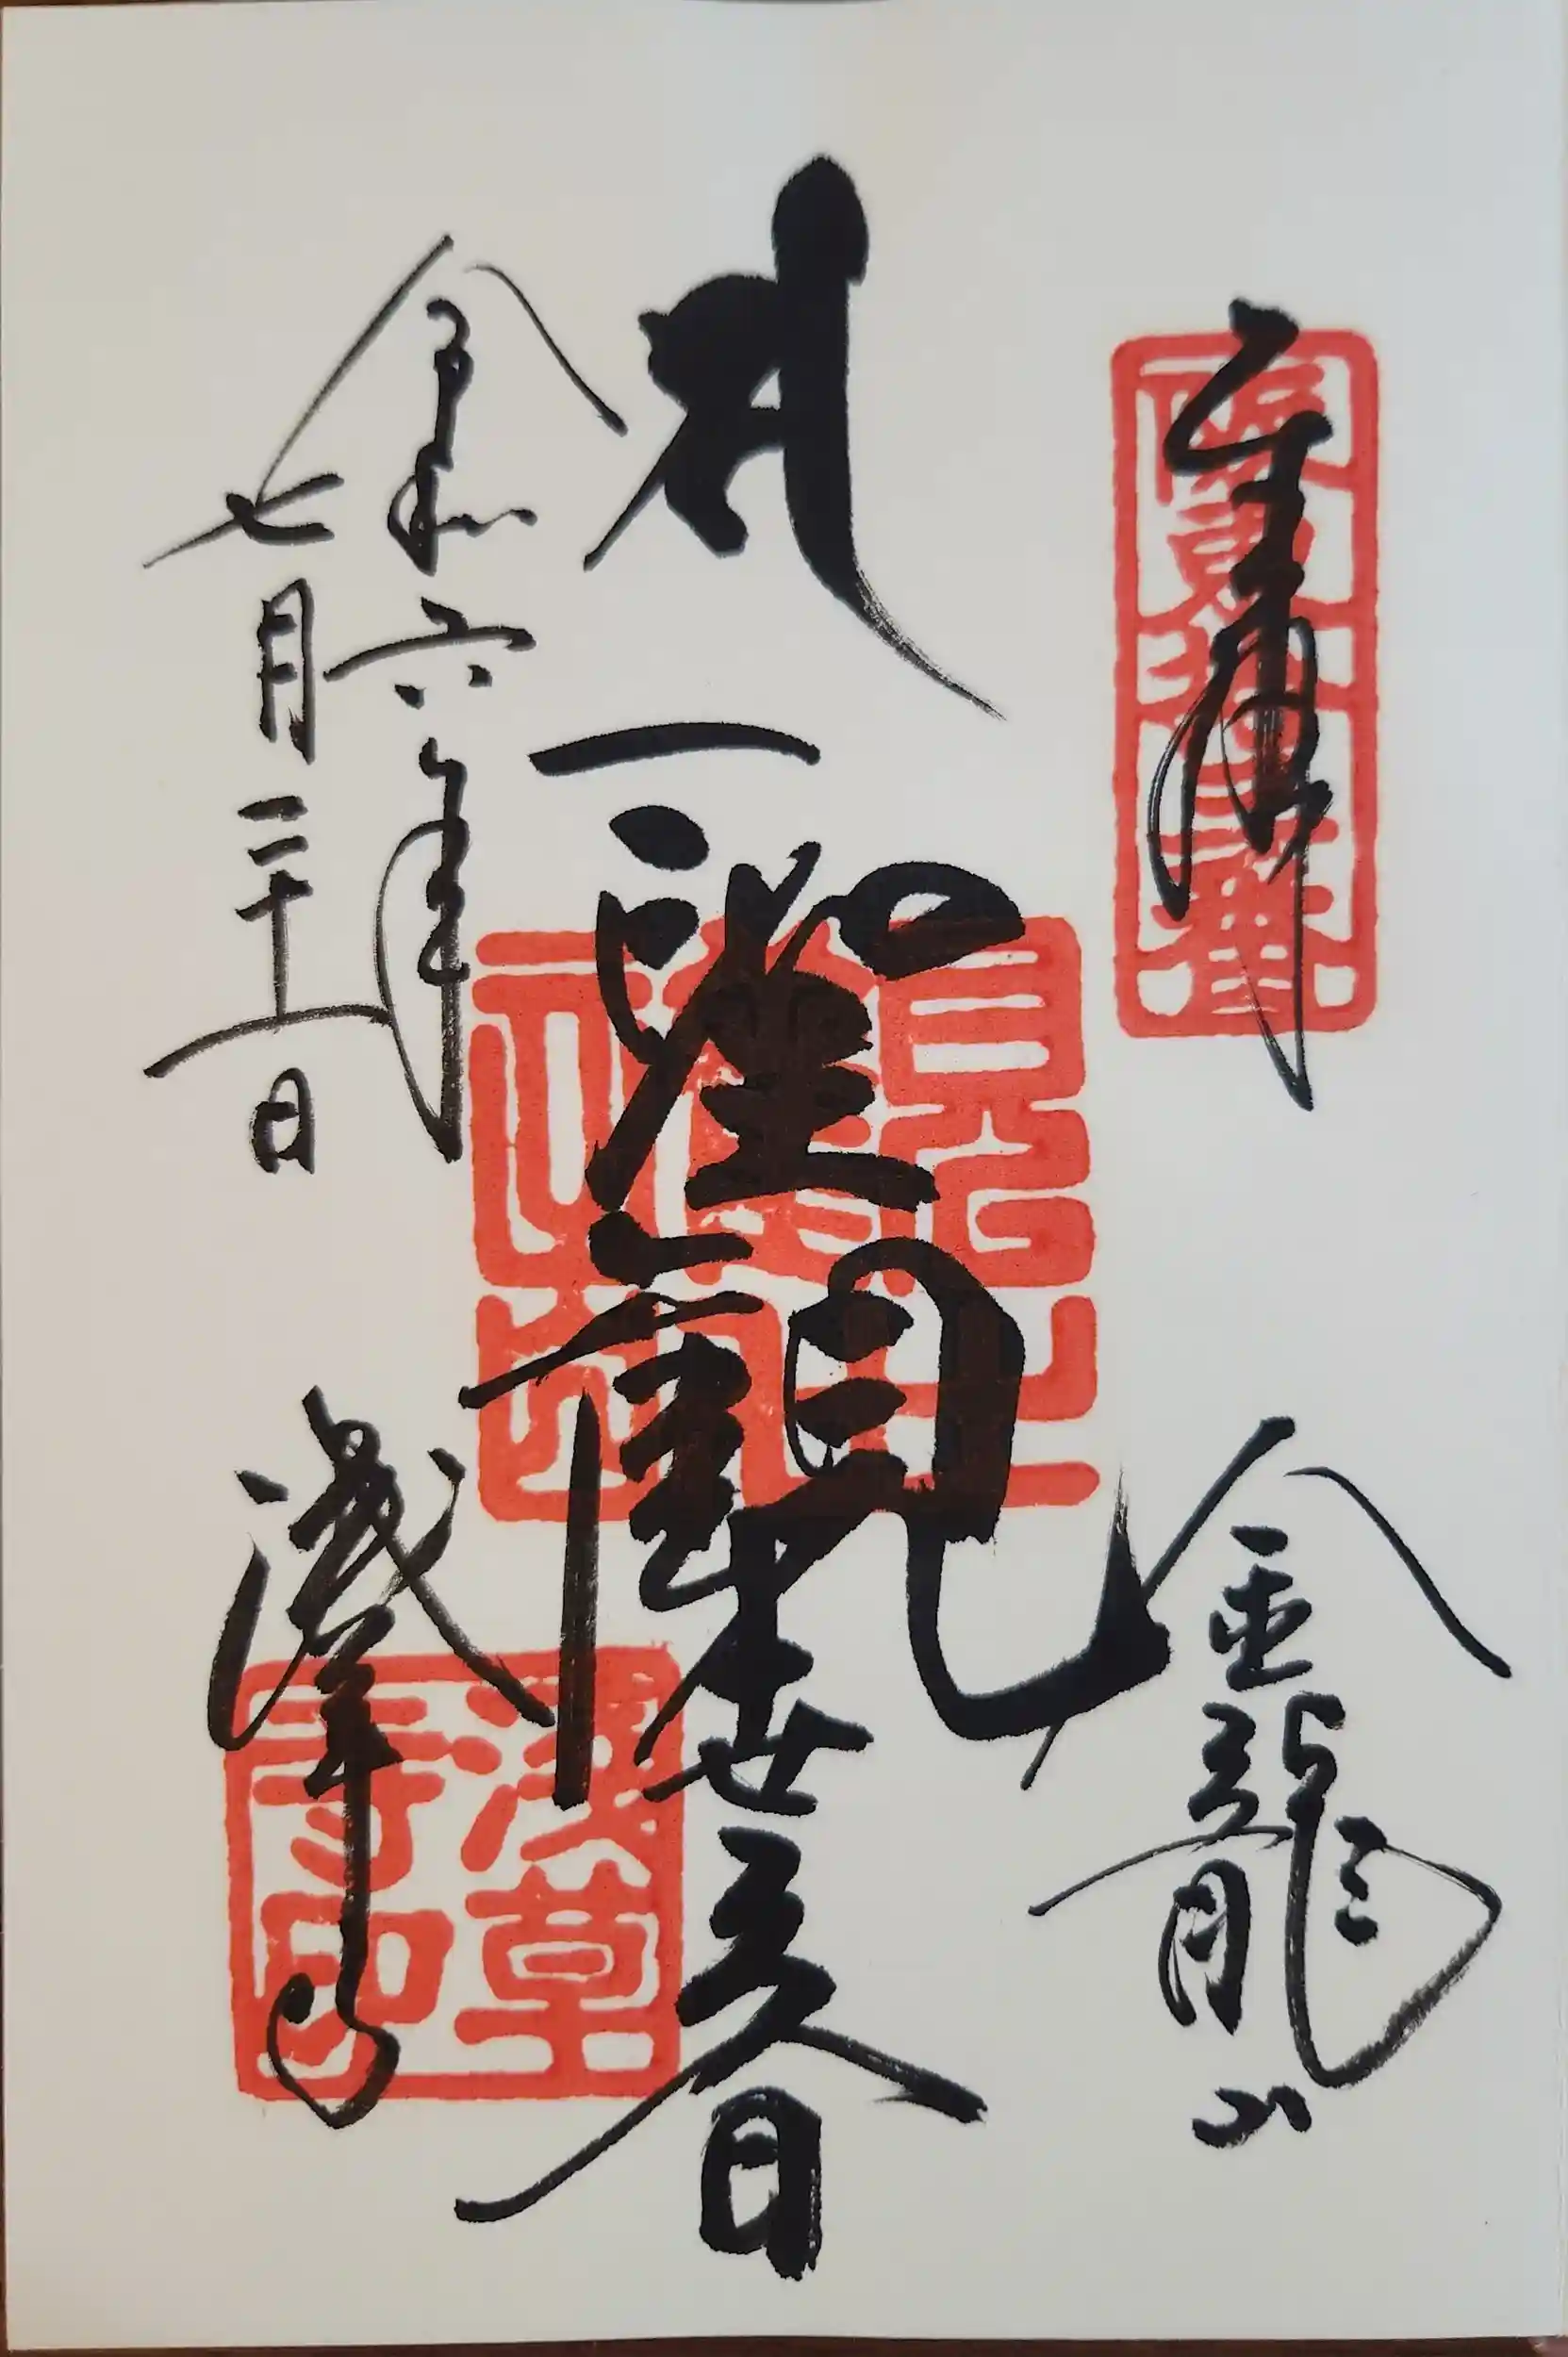 奉拝
金龍山
聖観世音
令和六年
七月二十一日
浅草寺
阪東拾三番
浅草寺印